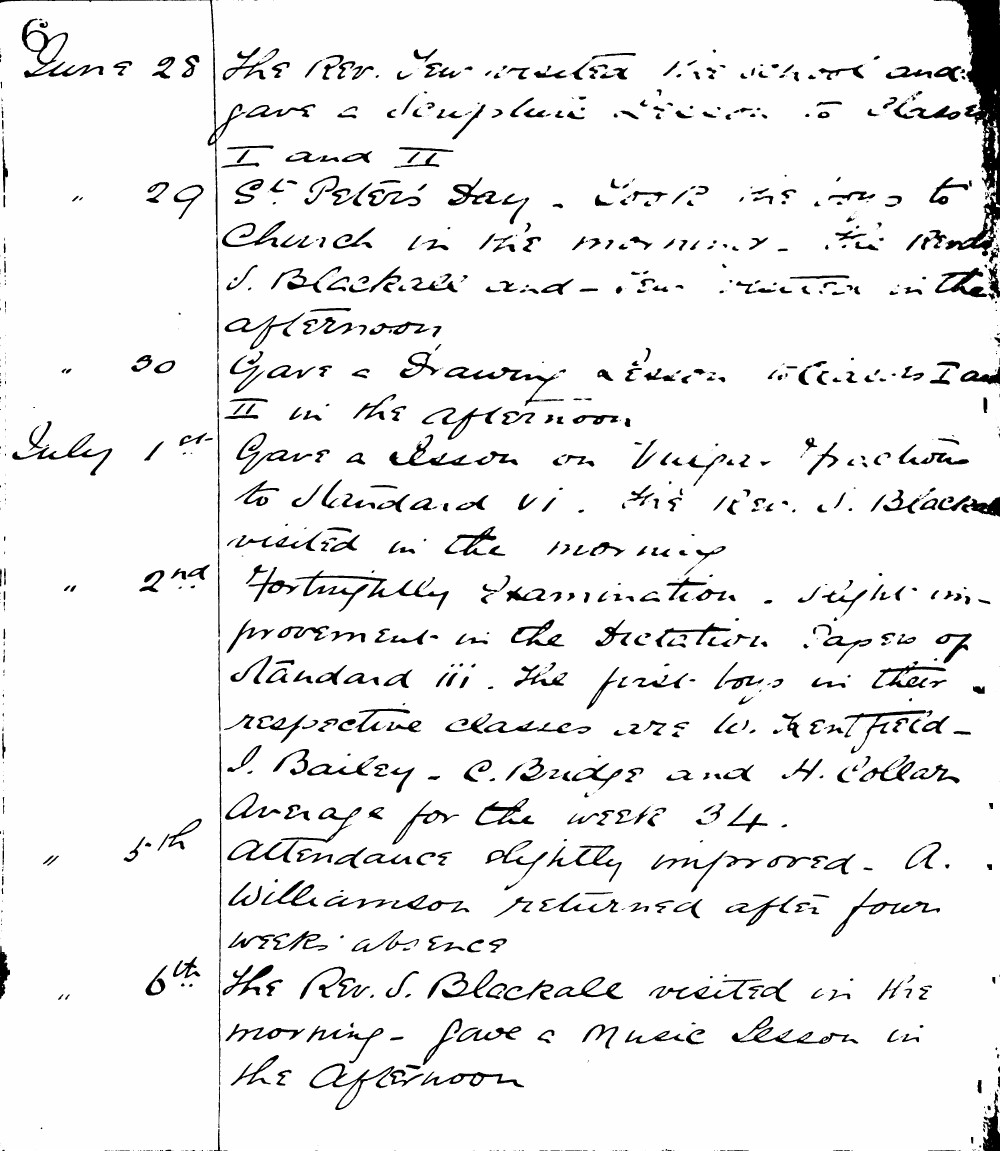 6
June 28 The Rev. Tew visited the school and
gave a Scripture Lesson to Classes
I and II
" 29 St. Peter's Day - Took the boys to
Church in the morning - The Revds
S. Blackall and - Tew visited in the
afternoon
" 30 Gave a Drawing Lesson to Classes I an
II in the afternoon
July 1st Gave a Lesson on Vulgar Fractions
to Standard VI. The Rev. S. Blackall
visited in the morning
" 2nd Fortnightly Examination. Slight im-
provement in the Dictation Papers of
Standard iii. The first boys in their
respective classes are W. Kentfield -
I. Bailey - C. Bridge and H. Collar
Average for the week 34.
" 5th Attendance slightly improved - A.
Williamson returned after four
weeks absence
" 6th The Rev. S. Blackall visited in the
morning - Gave a Music Lesson in
the Afternoon